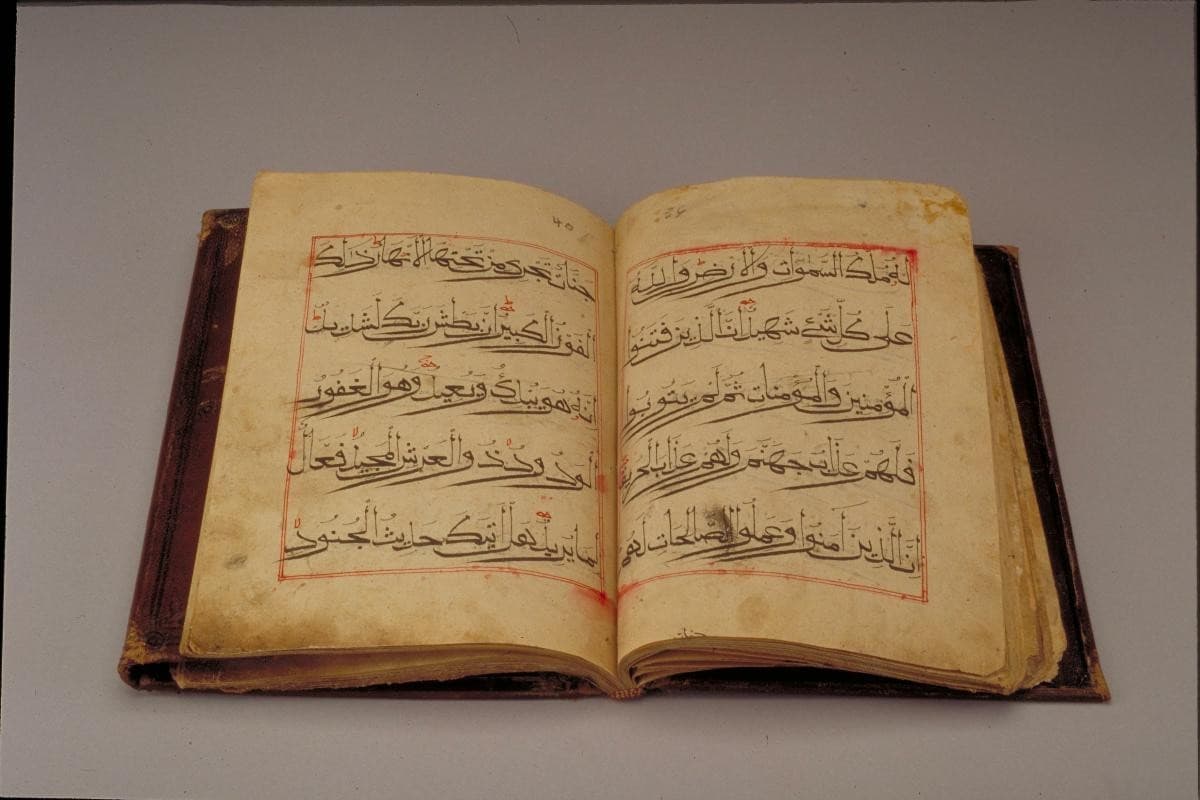 لَهُ مُلْكُ السَّمٰوَاتِ وَالْاَرْضِ وَاللّٰهُ
عَلٰى كُلِّ شَئٍ شَهِيدٌ اِنَّ الَّذِينَ فَتَنُوا
الْمُؤْمِنِينَ وَالْمُؤْمِنَاتِ ثُمَّ لَمْ يَتُوبُوا
فَلَهُمْ عَذَابُ جَهَنَّمَ وَلَهُمْ عَذَابُ الْحَرِيقِ
اِنَّ الَّذِينَ اٰمَنُوا وَعَمِلُوا الصَّالِحَاتِ لَهُمْ
جنات
جَنَّاتٌ تَجْرِى مِنْ تَحْتِهَا الْاَنْهَارُ ذٰلِكَ
الْفَوْزُ الْكَبِيرُ اِنَّ بَطْشَ رَبِّكَ لَشَدِيدٌ
اِنَّهُ هُوَ يُبْدِئُ وَيُعِيدُ وَهُوَ الْغَفُورُ
الْوَدُودُ ذُو الْعَرْشِ الْمَجِيدُ فَعَّالٌ
لِمَا يُرِيدُ هَلْ اَتٰيكَ حَدِيثُ الْجُنُودِ